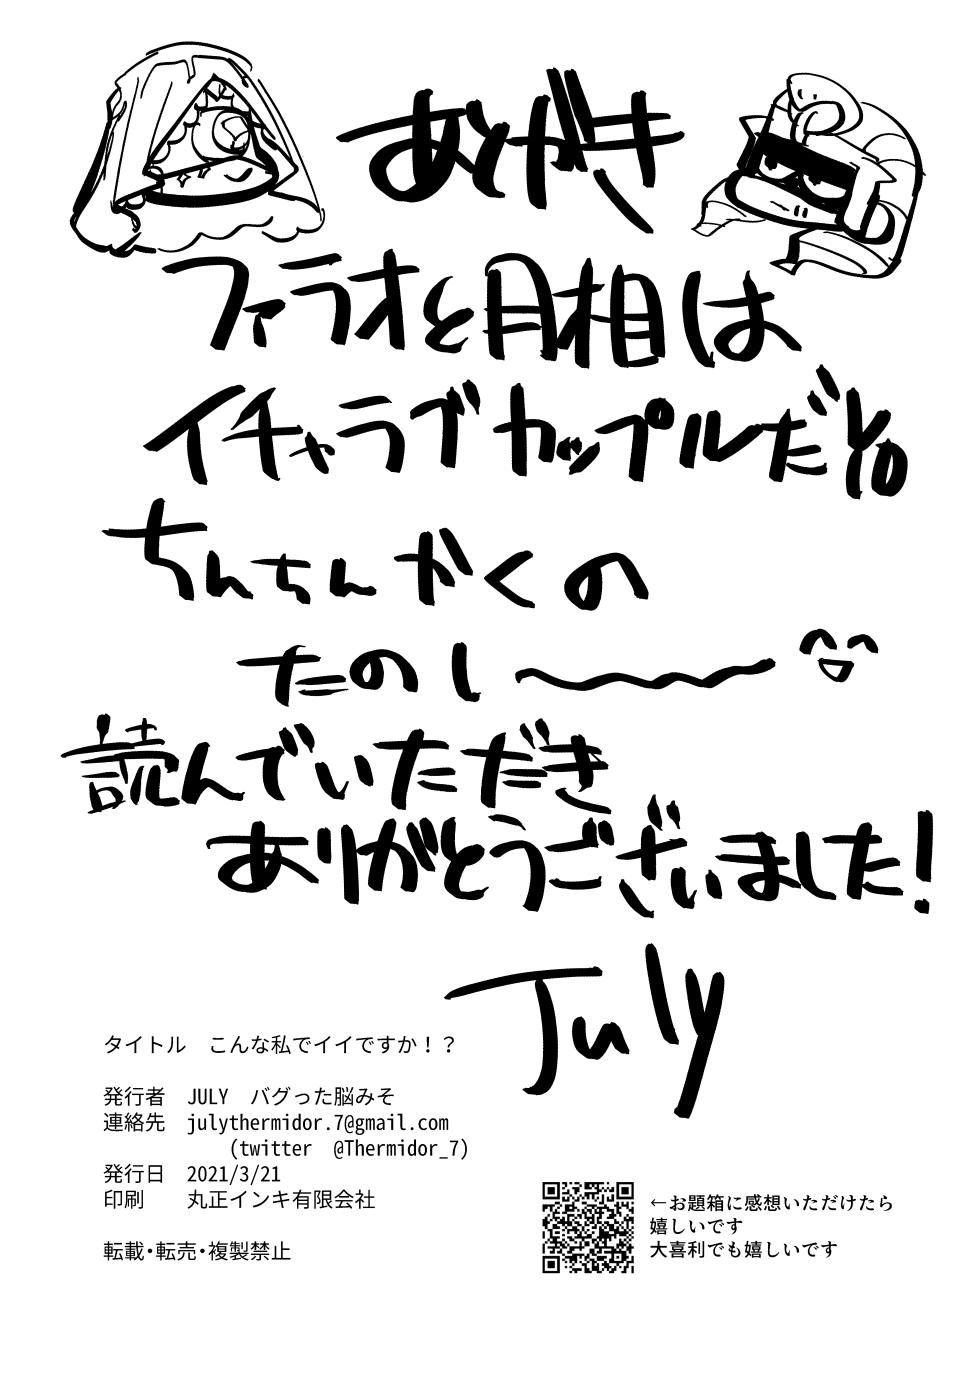 あとがき
ファラオと月相は
イチャラブカップルだyo
ちんちんかくの
たのし〜
読んでいただき
ありがとうございました!
July
タイトル こんな私でイイですか!?
発行者 JULY バグった脳みそ
連絡先 julythermidor.7@gmail.com
(twitter @Thermidor_7)
発行日 2021/3/21
印刷 丸正インキ有限会社
転載・転売・複製禁止
←お題箱に感想いただけたら
嬉しいです
大喜利でも嬉しいです